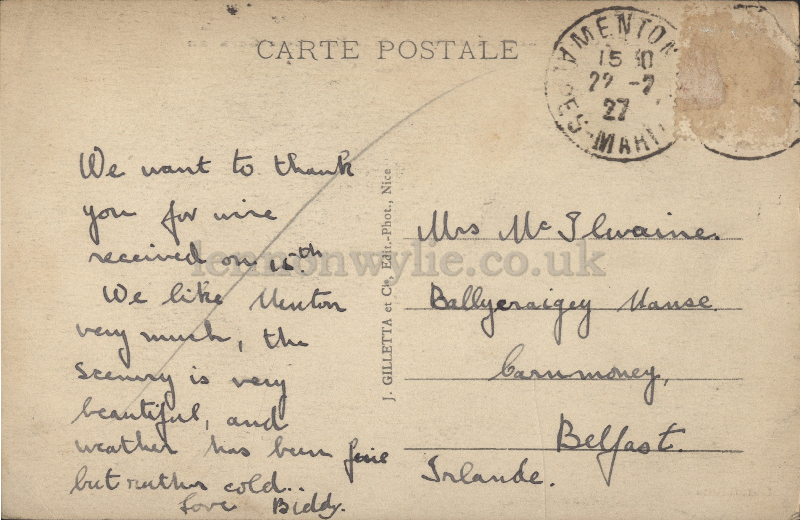 CARTE POSTALE
MENTON
15 30
22 -2
27
ALPES-MARIT
We want to thank
you for wire
received on 15th.
We like Menton
very much, the
scenery is very
beautiful, and
weather has been fine
but rather cold..
Love Biddy.
J. GILLETTA et Cie, Edit.-Phot., Nice
Mrs McIlwaine.
Ballycraigey Manse.
Carnmoney,
Belfast.
Irlande.
lennonwylie.co.uk